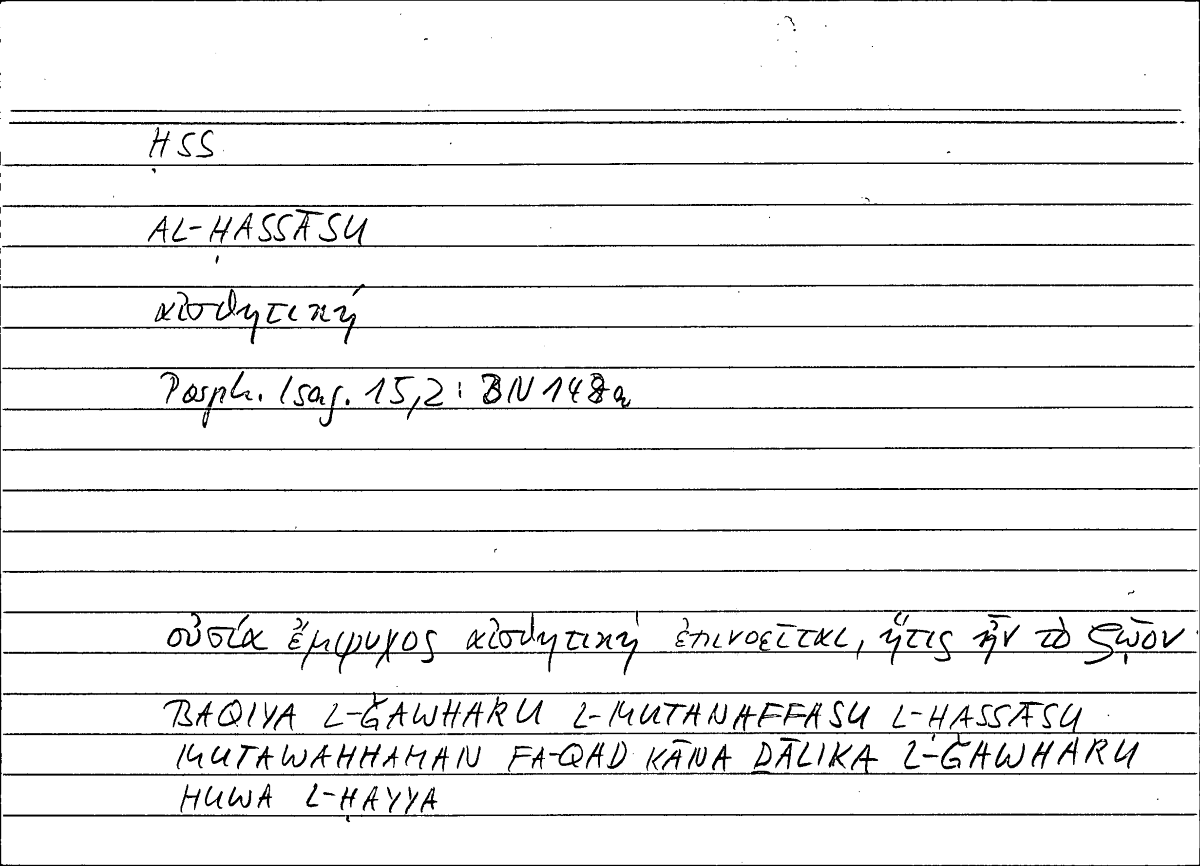 ḤSS
AL-ḤASSĀSU
αἰσθητική
Porph. Isag. 15,2 : BN 148a
οὐσία ἔμψυχος αἰσθητική ἐπινοεῖται, ἥτις ἦν τὸ ζῷον
BAQIYA L-ǦAWHARU L-MUTANAFFASU L-ḤASSĀSU
MUTAWAHHAMAN FA-QAD KĀNA ḎĀLIKA L-ǦAWHARU
HUWA L-ḤAYYA